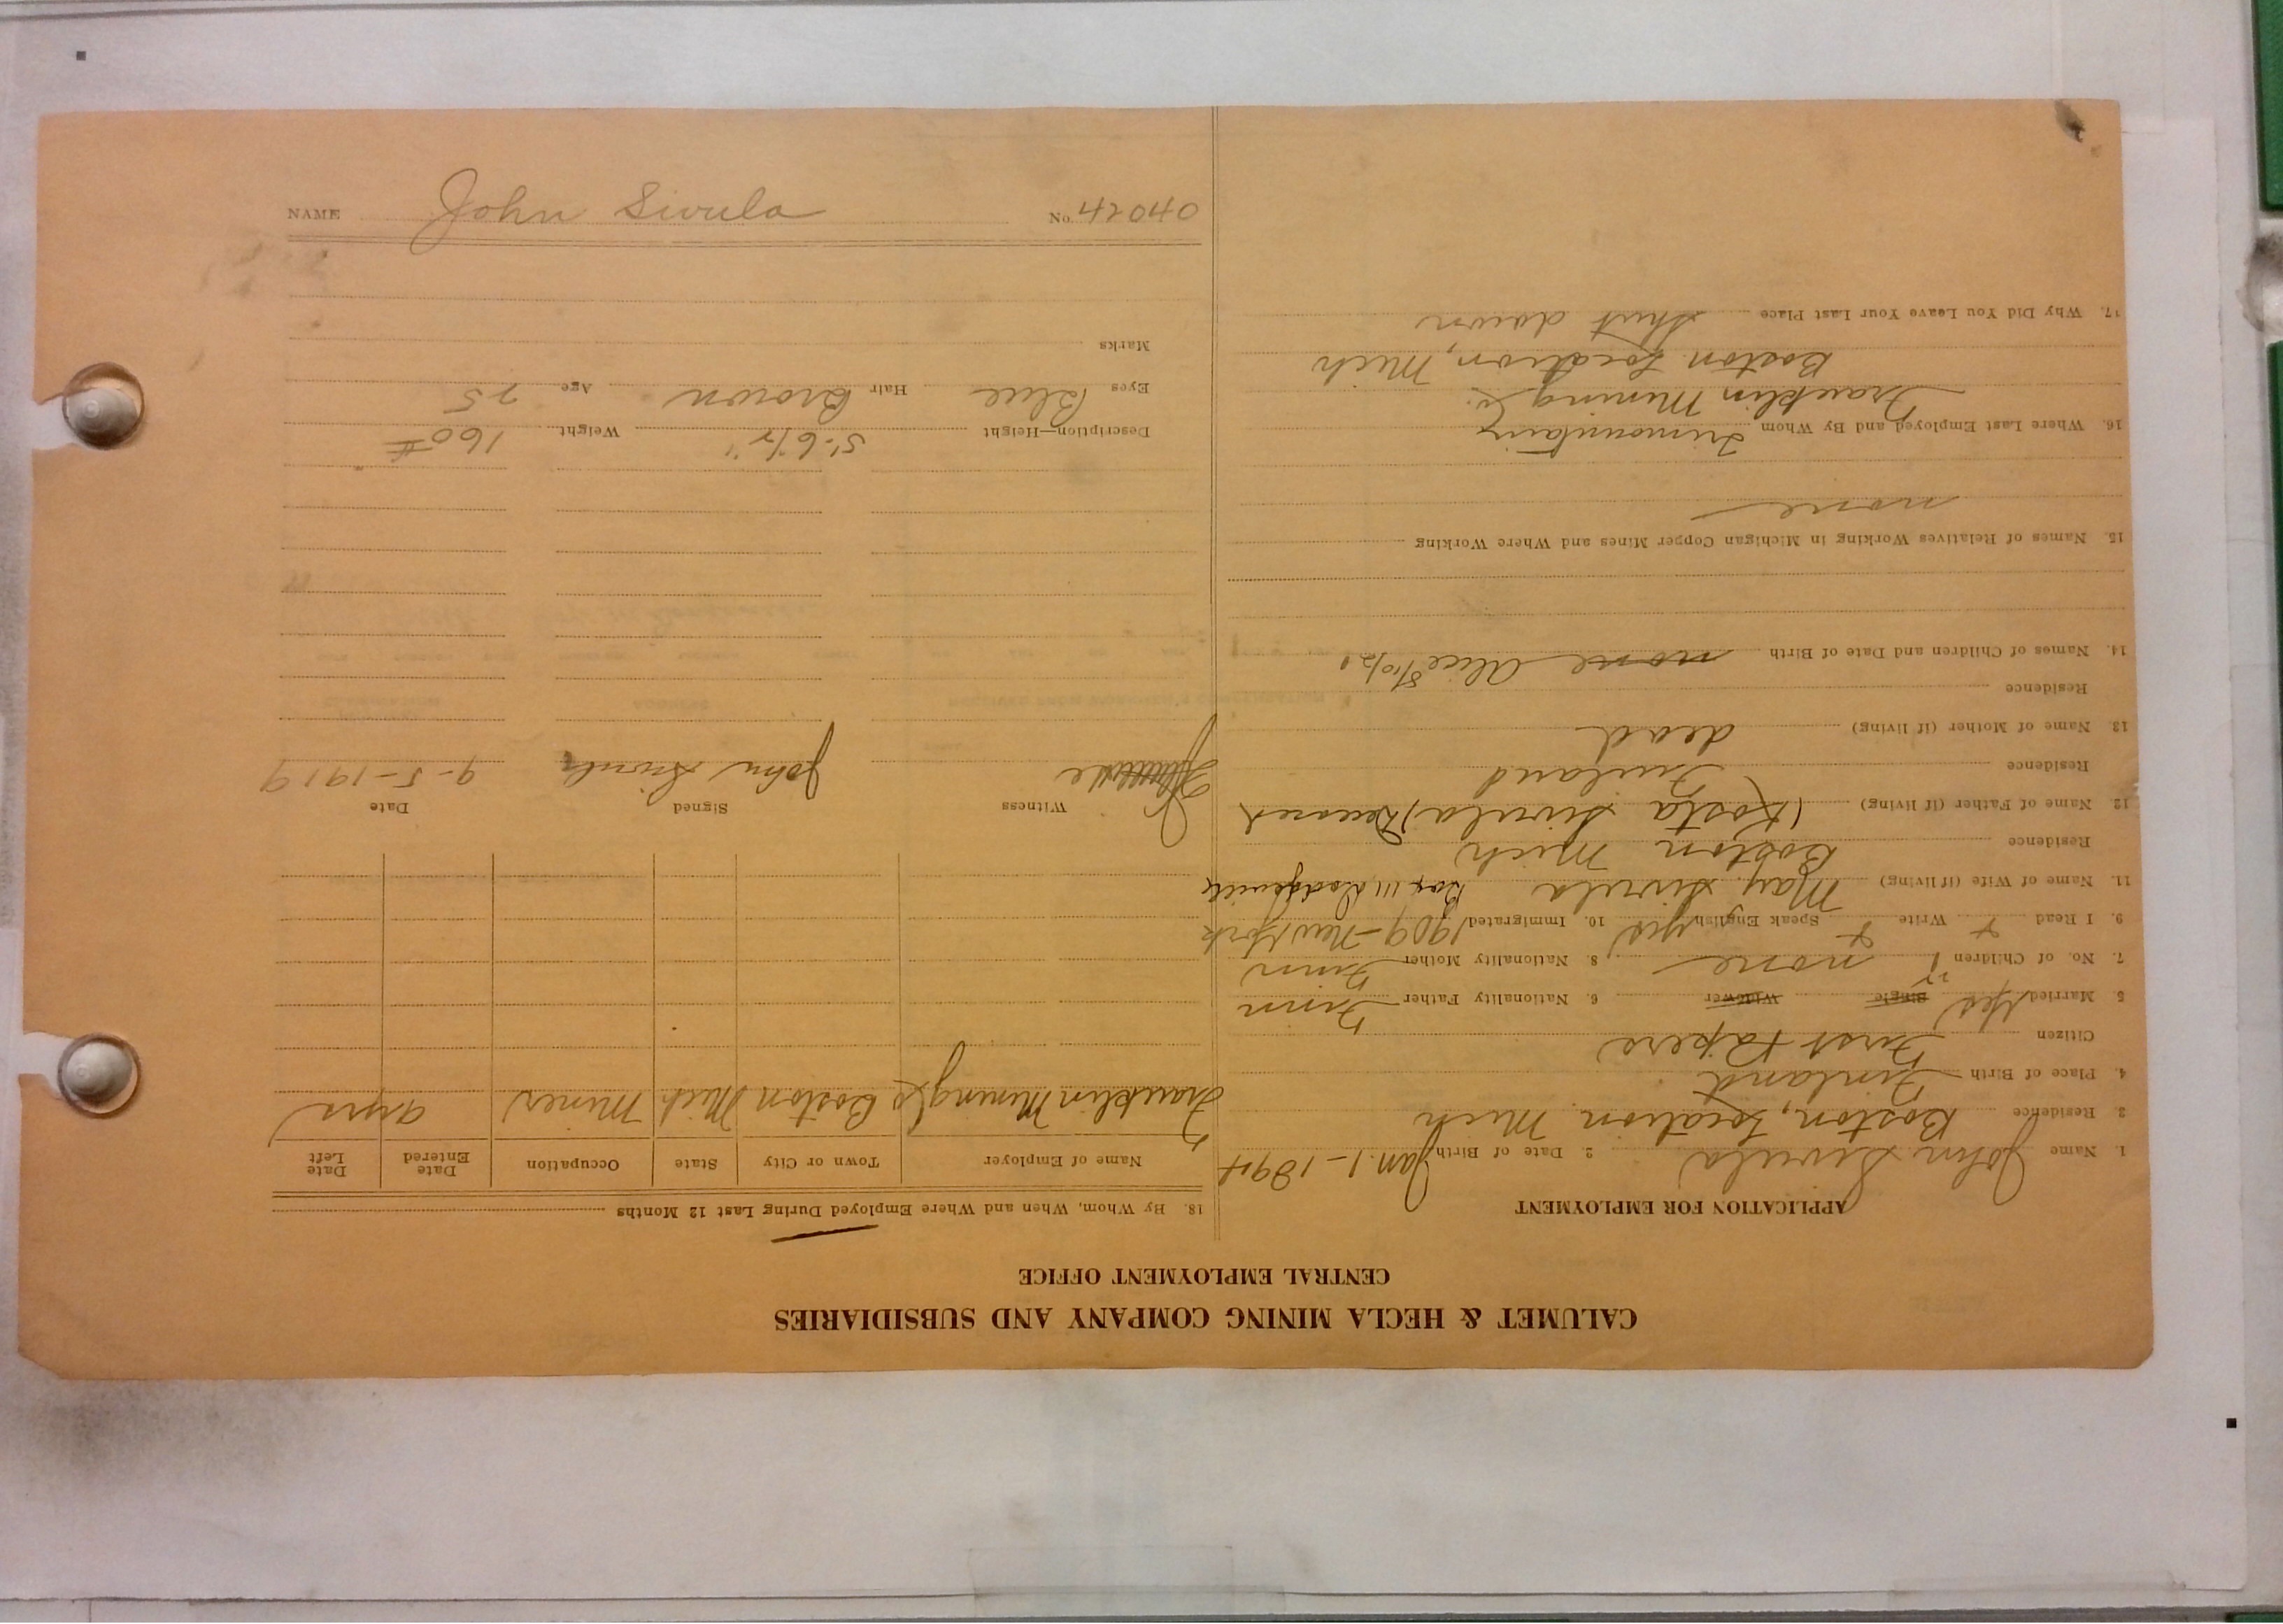 CALUMET & HECLA MINING COMPANY AND SUBSIDIARIES
CENTRAL EMPLOYMENT OFFICE
APPLICATION FOR EMPLOYMENT
1. Name John Sivula 2. Date of Birth Jan. 1-1894
3. Residence Boston, Location Mich
4. Place of Birth Finland
Citizen First Papers
5. Married Yes Single Widower 6. Nationality Father Finn
7. No. of Children none 8. Nationality Mother Finn
9. I Read Write Speak English yes 10. Immigrated 1909-New York
11. Name of Wife (if living) May Sivula Box 111, Dodgeville
Residence Boston Mich
12. Name of Father (if living) (Kosta Sivula) Deceased
Residence Finland
13. Name of Mother (if living) dead
Residence
14. Names of Children and Date of Birth none Alice 8/10/21
15. Names of Relatives Working in Michigan Copper Mines and Where Working
none
16. Where Last Employed and By Whom Trimountain
Franklin Mining Co.
Boston Location, Mich
17. Why Did You Leave Your Last Place Shut down
18. By Whom, When and Where Employed During Last 12 Months
Name of Employer Town or City State Occupation Date Entered Date Left
Franklin Mining Co Boston Mich Miner 4 yrs
Witness Signed Date
John Sivula 9-5-1919
Description—Height 5'-6½" Weight 160#
Eyes Blue Hair Brown Age 25
Marks
NAME John Sivula No. 42040